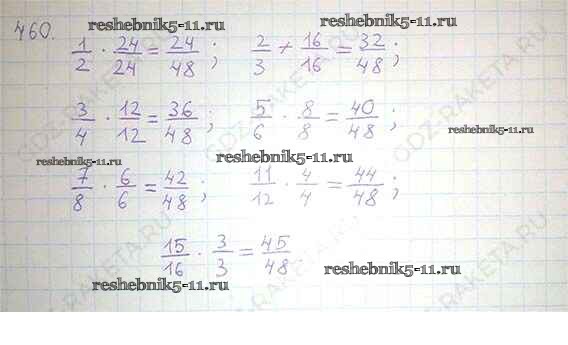 reshebnik5-11.ru reshebnik5-11.ru
460. 1/2 · 24/24 = 24/48; 2/3 + 16/16 = 32/48;
3/4 · 12/12 = 36/48; 5/6 · 8/8 = 40/48;
reshebnik5-11.ru
reshebnik5-11.ru reshebnik5-11.ru
7/8 · 6/6 = 42/48; 11/12 · 4/4 = 44/48;
15/16 · 3/3 = 45/48
reshebnik5-11.ru reshebnik5-11.ru
GDZ-RAKETA.RU
GDZ-RAKETA.RU
GDZ-RAKETA.RU
GDZ-RAKETA.RU